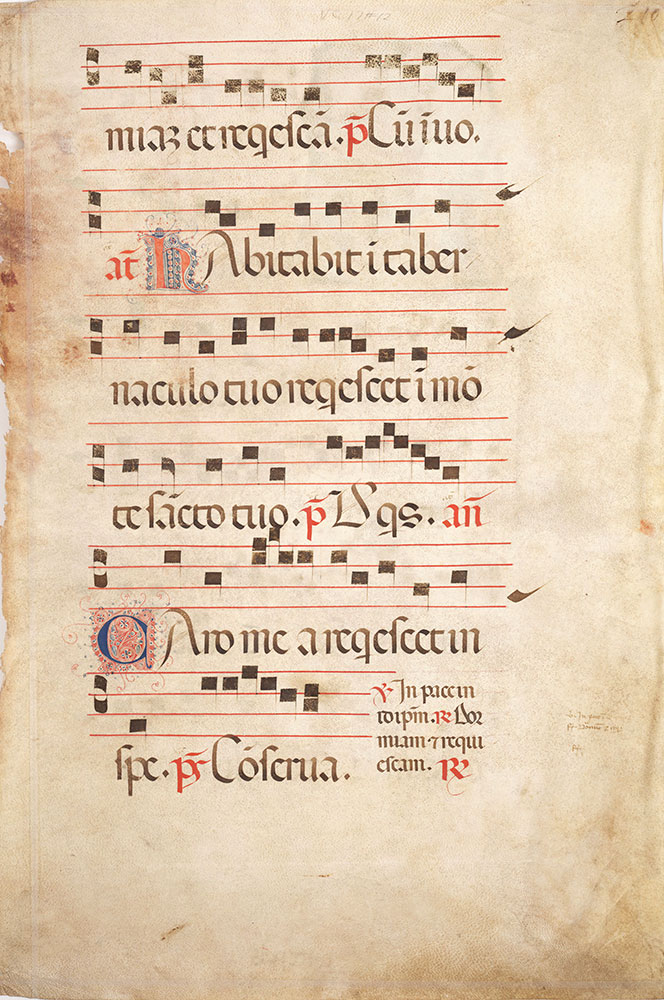 miaȝ et reqescā. p̄s Cū īuo.
an̄ HAbitabit ī taber
naculo tuo reqescet ī mō
te sācto tuo. p̄s Dn̄s qs. an̄
CAro mea reqescet in
spe. p̄s Cōserua.
℣ In pace in
idip̄m. ℟ Dor
miam ⁊ requi
escam. ℟